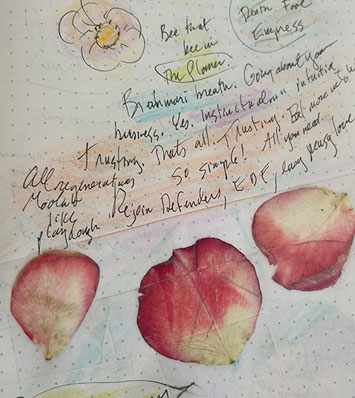 Bee that
bee in
The Flower.
Death Food
Empress
Brahmari breath. Going about your
business. Yes. Instructed on intuitive
trusting. That's all. Trusting. Eat more
So simple! All you need
Rejoin Defenders, EDF, easy peasy love
All regenerating
like
playdough